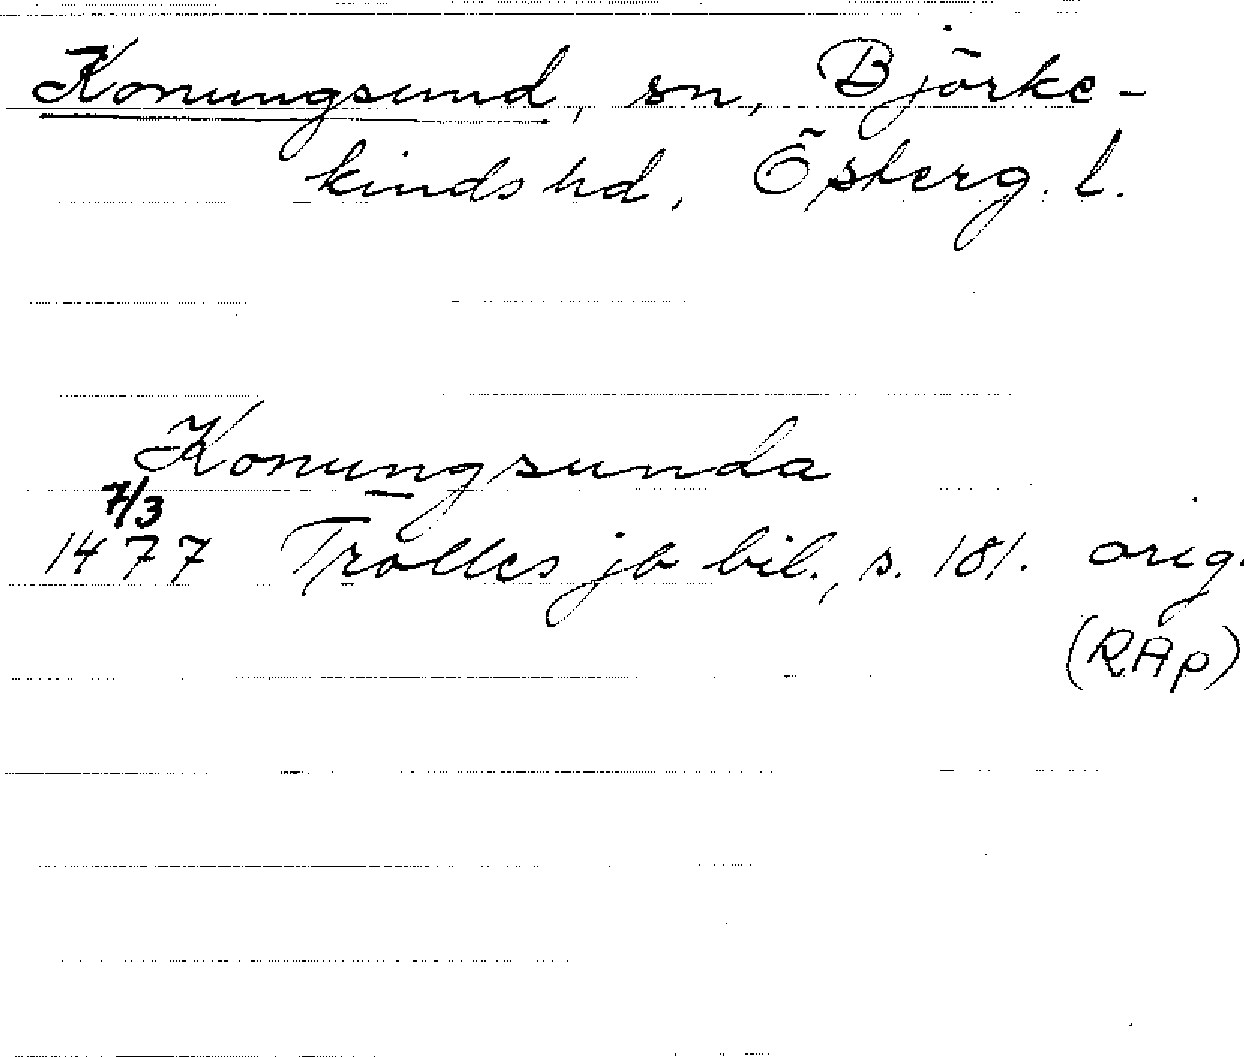 Konungsund, sn, Björke-
kinds hd, Österg. l.
Konungsunda
7/3
1477 Trolles jb bil., s. 181. orig.
(RAp)